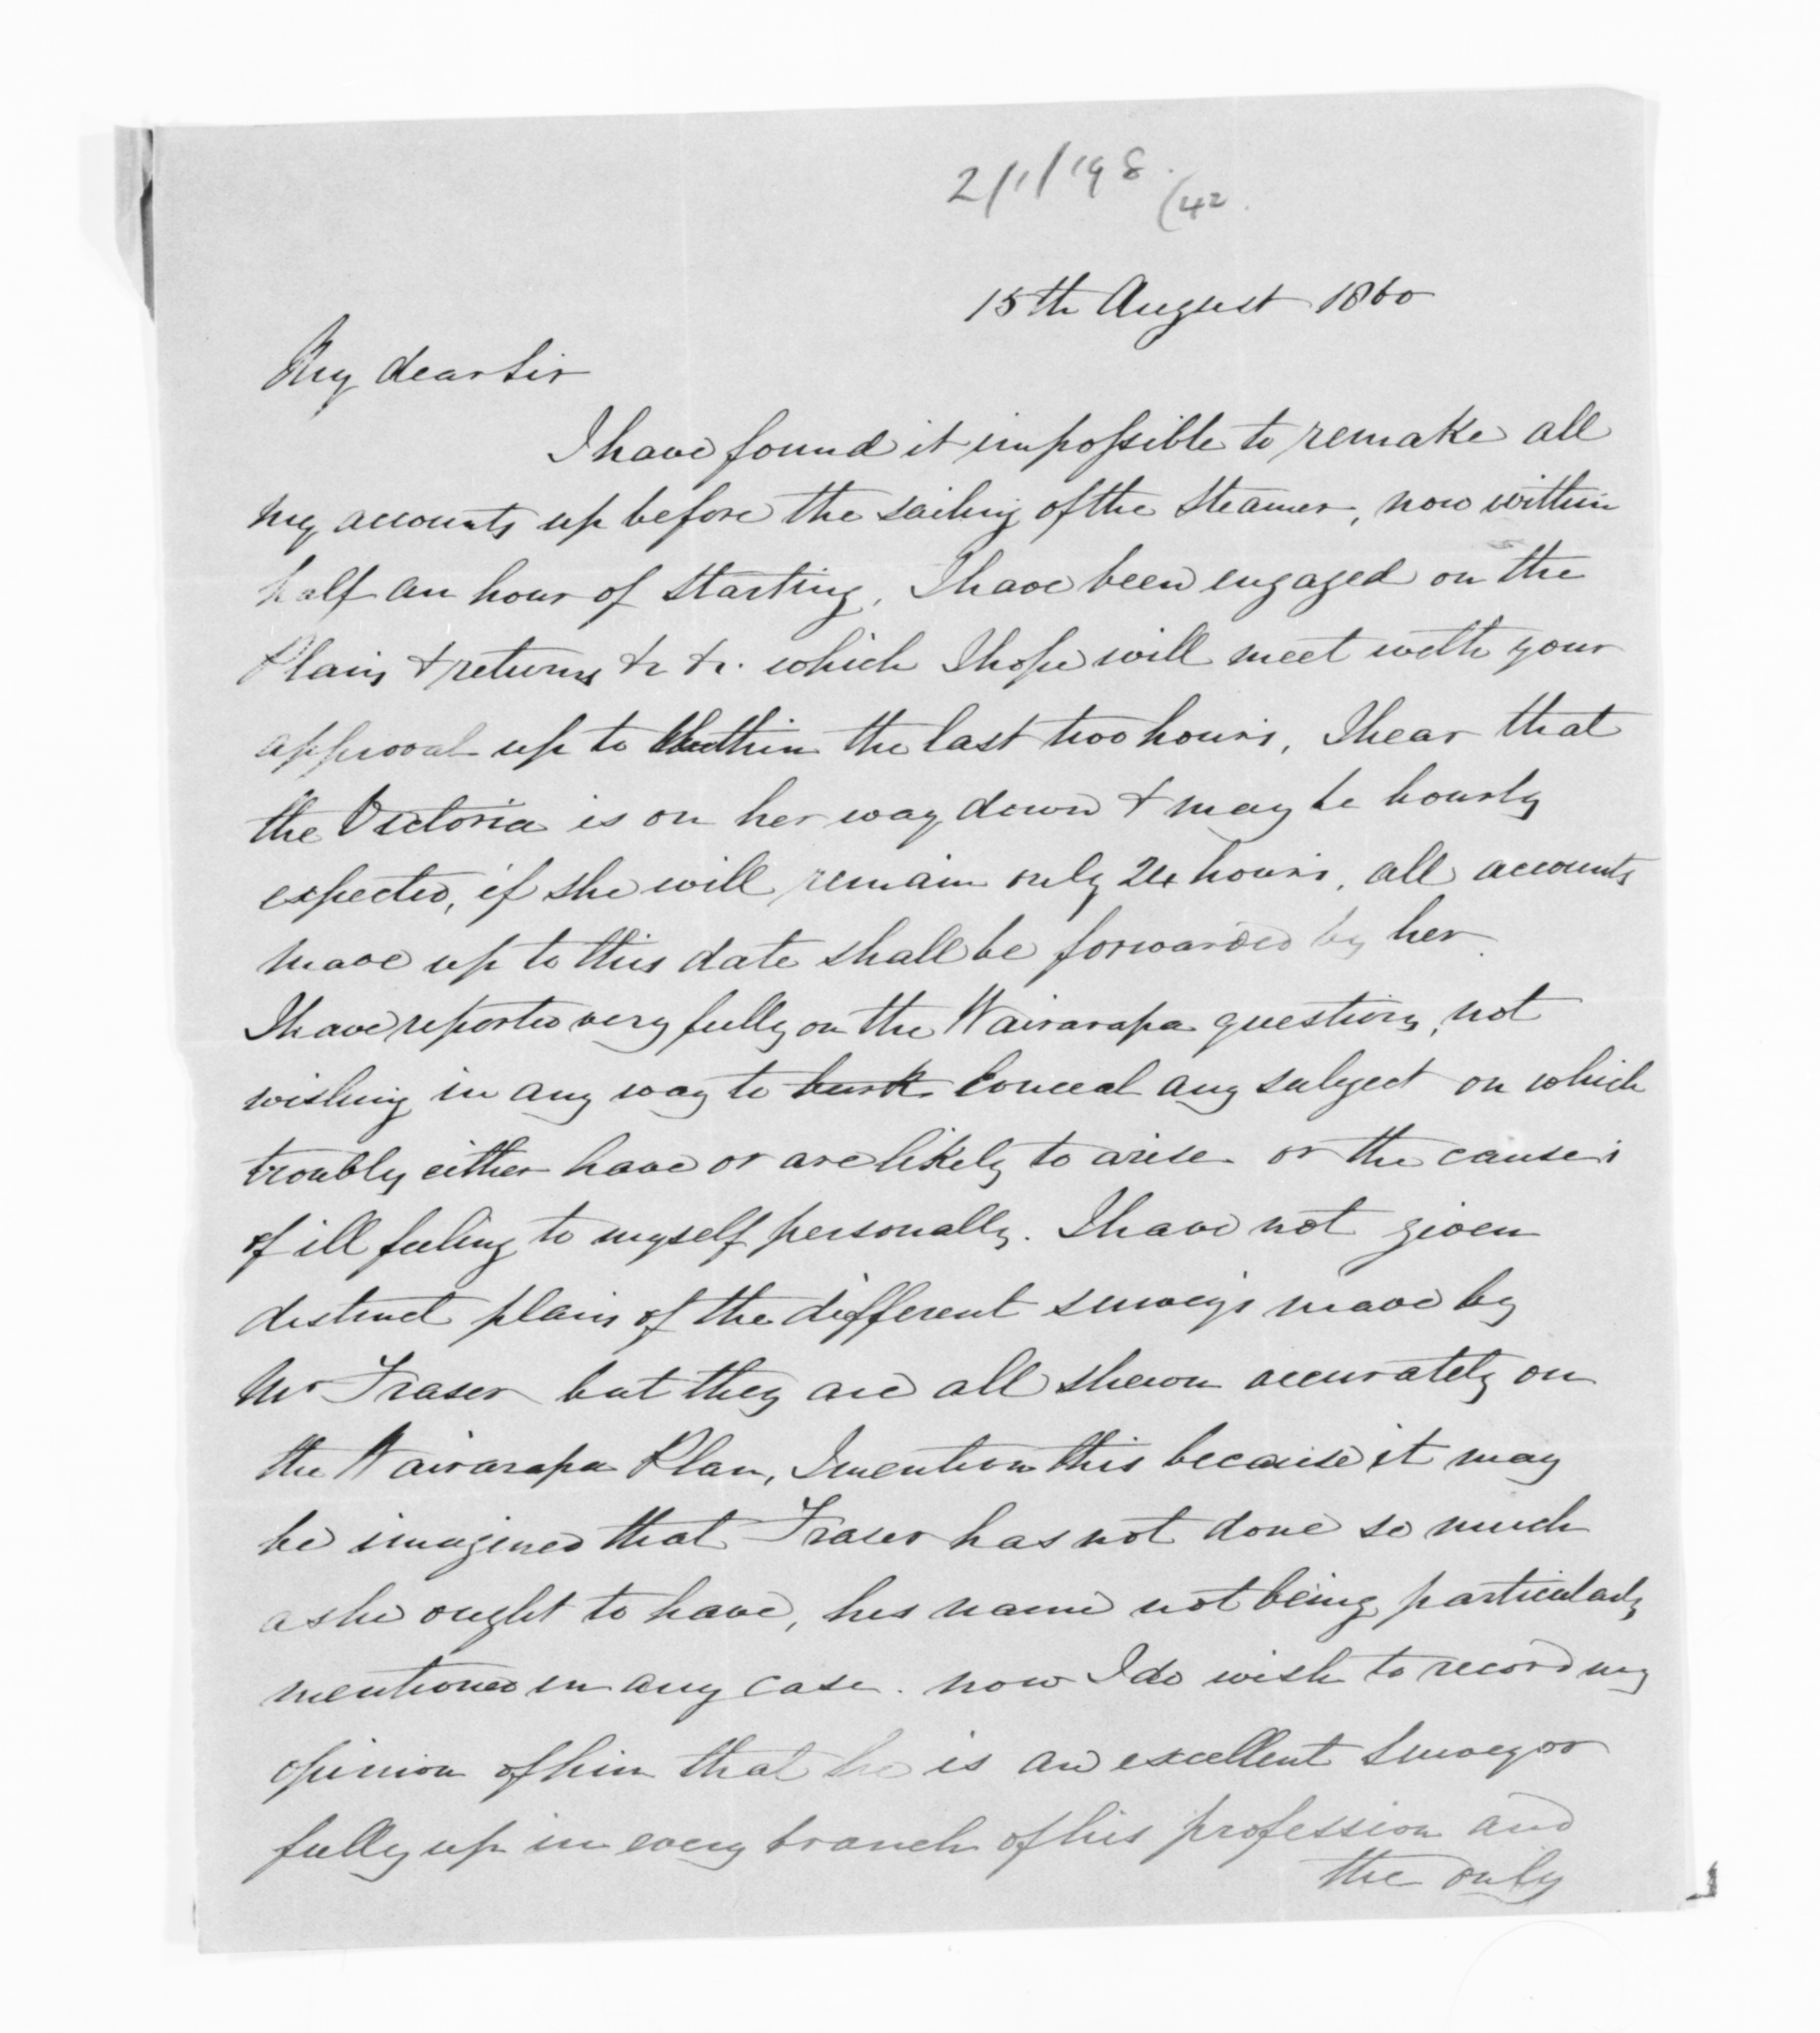 2/1/198.
(42.
15th August 1860
My dear Sir
I have found it impossible to remake all
my accounts up before the sailing of the Steamer, now within
half an hour of starting, I have been engaged on the
Plans & returns &c &c. which I hope will meet with your
approval up to within the last two hours, I hear that
the Victoria is on her way down & may be hourly
expected, if she will remain only 24 hours, all accounts
made up to this date shall be forwarded by her.
I have reported very fully on the Wairarapa questions, not
wishing in any way to burk conceal any subject on which
troubles either have or are likely to arise or the causes
of ill feeling to myself personally. I have not given
distinct plans of the different surveys made by
Mr Fraser but they are all shewn accurately on
the Wairarapa Plan, I mention this because it may
be imagined that Fraser has not done so much
as he ought to have, his name not being particularly
mentioned in any case. now I do wish to record my
opinion of him that he is an excellent Surveyor
fully up in every branch of his profession and
the only